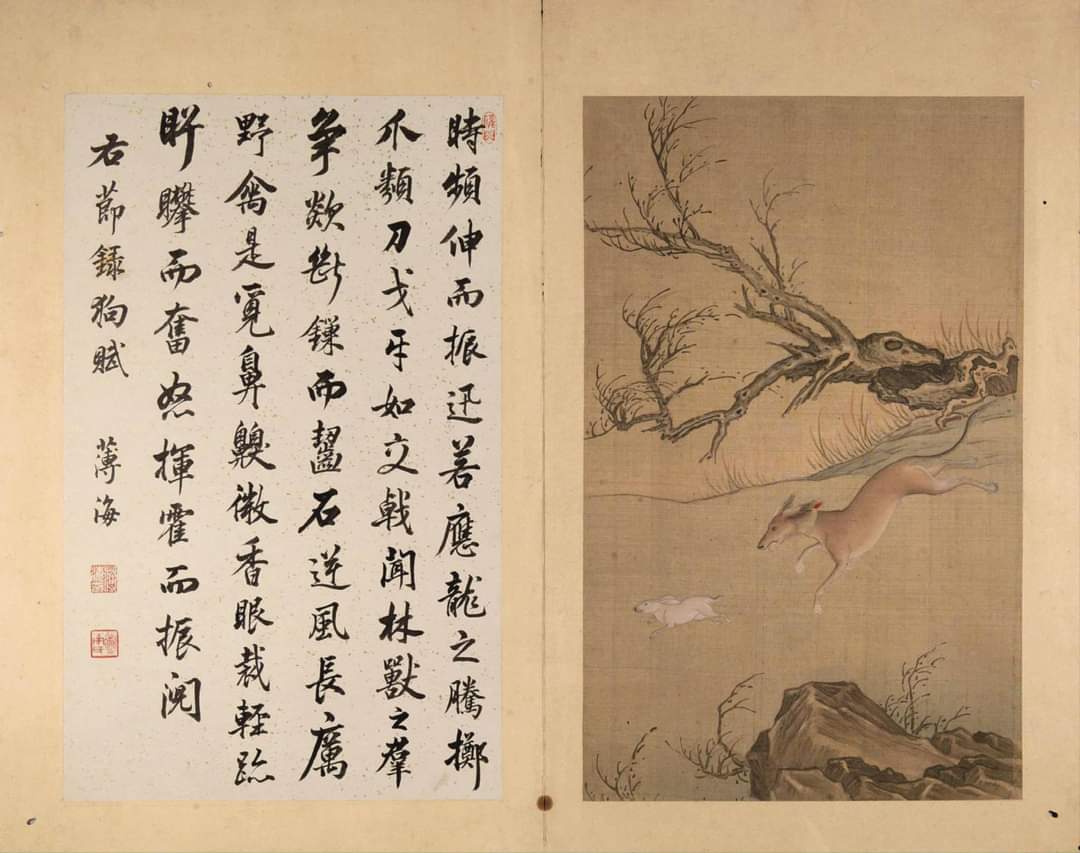 時頻伸而振迅若應龍之騰擲
爪類刀戈牙如交戟聞林獸之羣
爭欻斷鏁而齧石逆風長厲
野禽是覓鼻䶑微香眼裁輕跡
盱矔而奮怒揮霍而振閱
右節錄狗賦
薄海